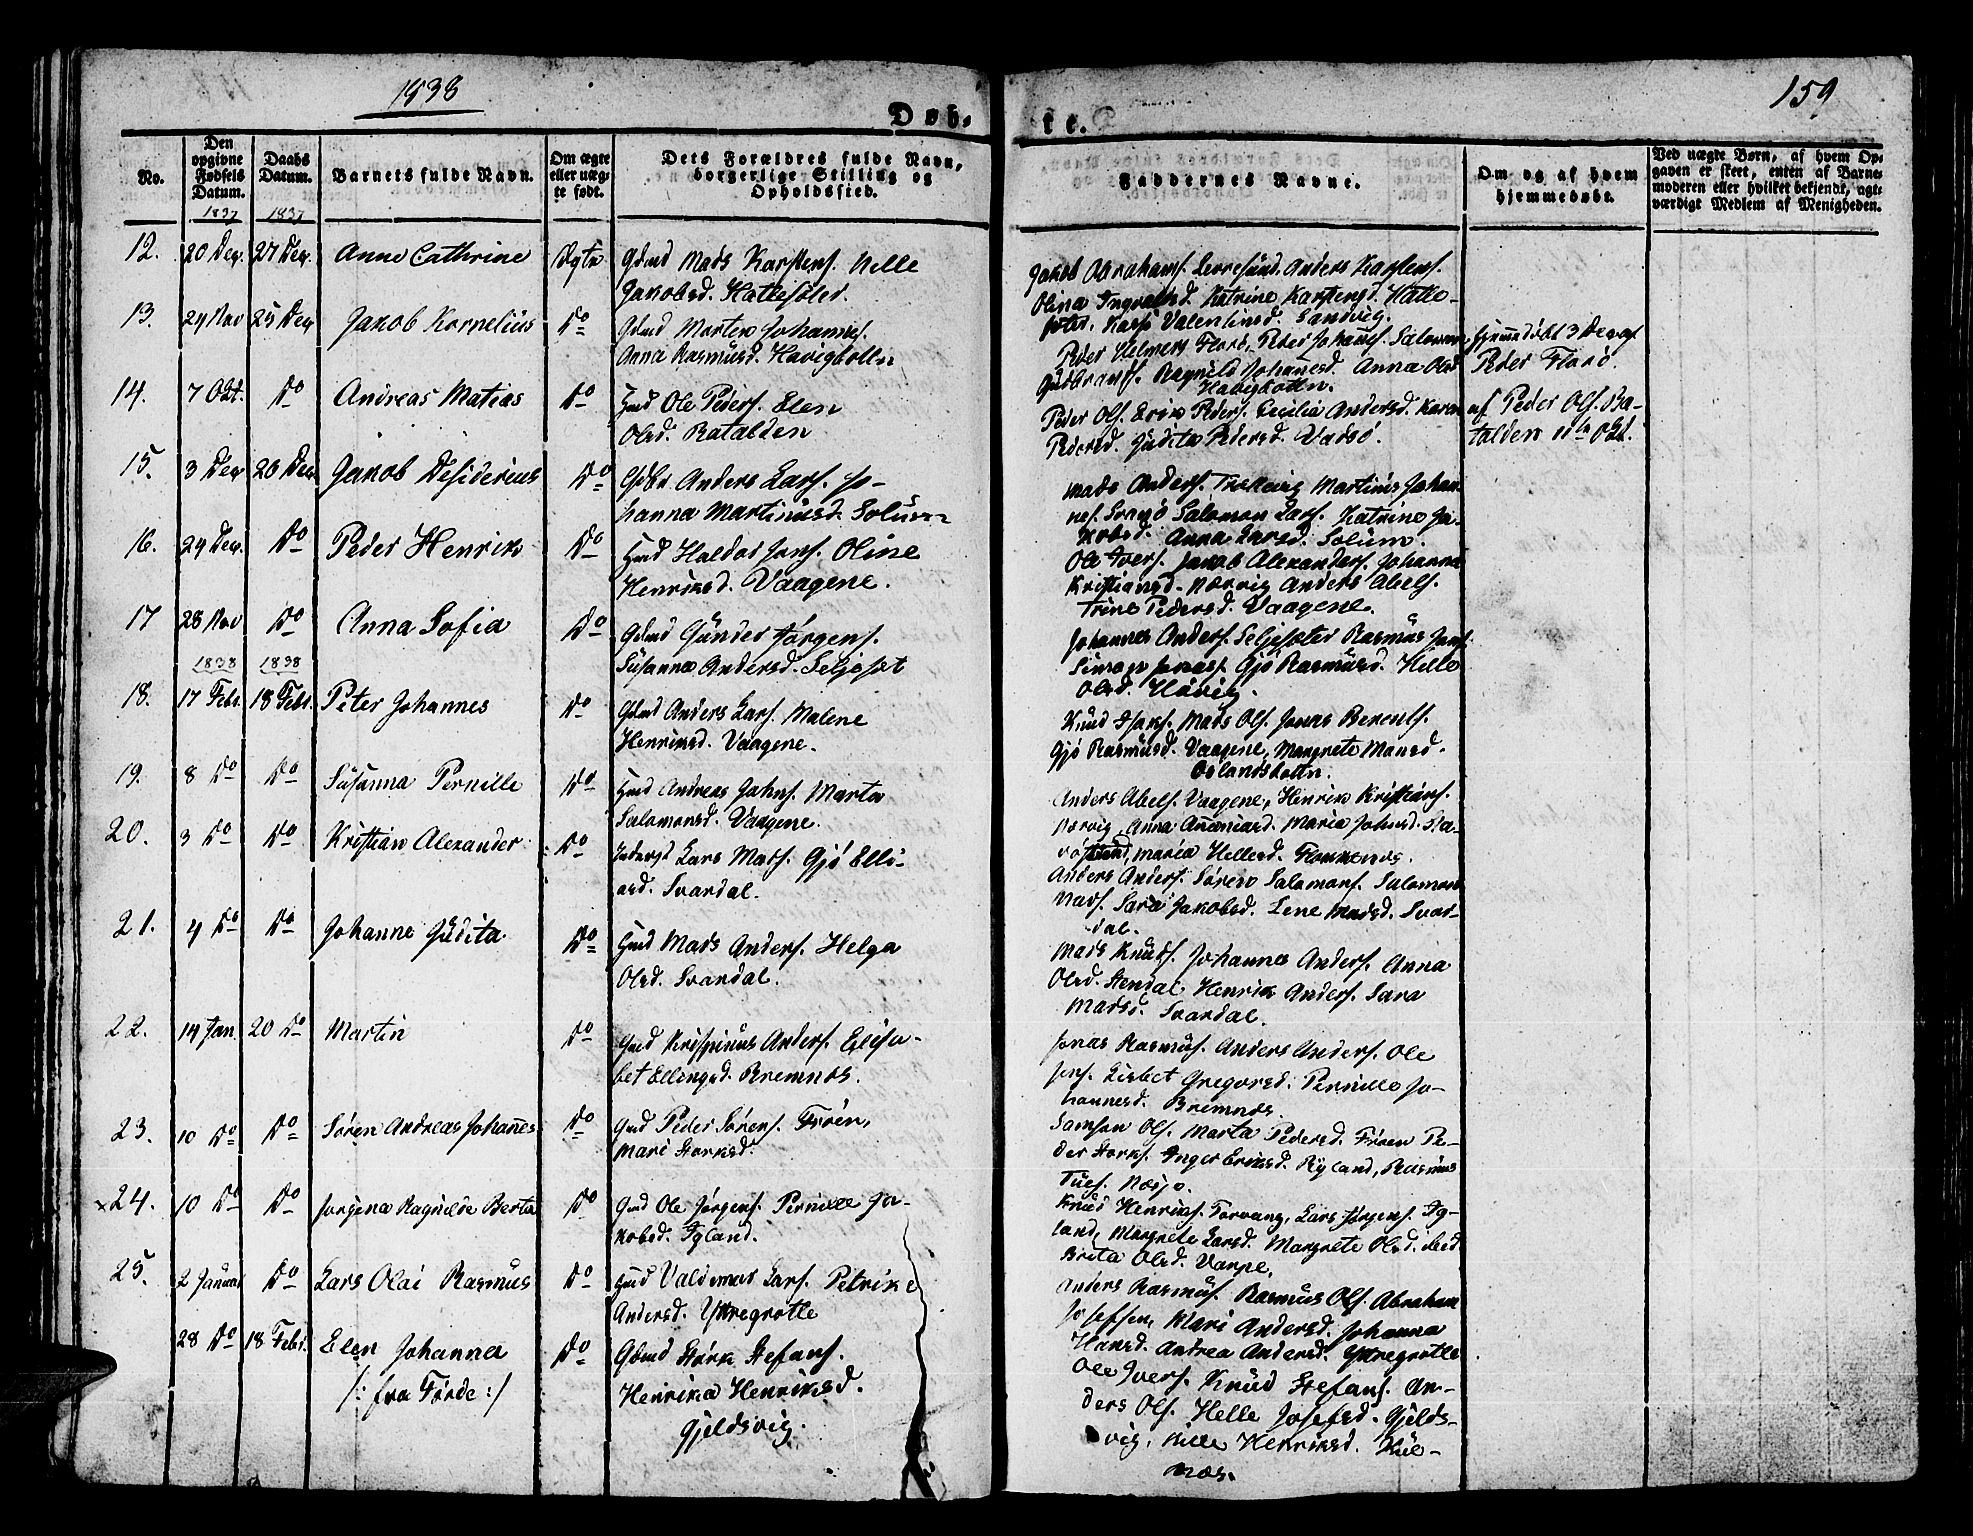 1838
159
Døb-
te.
No.
Den opgivne Fødsels Datum.
Daabs Datum.
Barnets fulde Navn.
Om ægte eller uægte født.
Dets Forældres fulde Navn, borgerlige Stilling og Opholdssted.
Faddernes Navne.
Om og af hvem hjemmedøbt.
Ved uægte Børn, af hvem Opgaven er skeet, enten af Barnemoderen eller hvilket bekjendt, agtværdigt Medlem af Menigheden.
1837 1837
12. 20 Dec. 27 Dec. Anne Cathrine Ægte Gdmd Mads Karstens. Helle
Jakobsd. Hattesøter.
Jakob Abrahams. Anders Karstens.
Olina Ingvalsd. Katrine Karstensd. Hatte-
søter, Valentinsd. Sandvig.
13. 24 Nov 25 Dec Jakob Kornelius Do Gdmd Morten Johannes.
Anna Rasmusd. Havigbotten
Peder Helmers Florø, Peder Johans. Salomon
Gudbrands. Ragnild Johanesd. Anna Olsd
Havigbotten.
Hjemmedøbt 3 Dec. af
Peder Florø.
14. 7 Okt. Do Andreas Matias Do Hmd Ole Peders. Elen
Olsd. Batalden
Peder Ols. Erik Peders. Cecilia Andersd. Karen
Pedersd. Judita Pedersd. Vadsø.
af Peder Ols. Ba-
talden 11te Okt.
15. 3 Dec 26 Dec Jakob Desiderius Do Gdbr Anders Lars. Jo-
hanna Martinusd. Solum
Mads Anders. Martinus Johan-
nes. Svanø Salomon Lars. Katrine Ja-
kobsd. Anna Larsd. Solum.
16. 24 Dec. Do Peder Henrik Do Hmd Haldor Jons. Oline
Henriksd. Vaagene.
Ole Ivers. Jakob Alexanders. Johanna
Kristiansd. Nærvig Anders Abels.
Trine Pedersd. Vaagene.
17 28 Nov Do Anna Sofia Do Gdmd Gunder Jørgens.
Susanna Andersd. Seljeset
Johannes Anders. Seljeseter Rasmus Jons.
Jonas. Gjø Rasmusd. Helle
Olsd. Høvig.
1838 1838
18. 17 Febr. 18 Febr. Peter Johannes Do Gdmd Anders Lars. Malene
Henriksd. Vaagene.
Knud Isaks. Mads Ols. Jonas Berents.
Gjø Rasmusd. Vaagene, Margrete Mansd.
Oslandsbottn.
19. 8 Do Do Susanna Pernille Do Hmd Andreas Johns. Marta
Salomonsd. Vaagene.
Anders Abels. Vaagene, Henrik Kristians.
Nærvig, Anna Ananiasd. Maria Johnsd.
Maria Hellesd.
20. 3 Do Do Kristian Alexander Do Lars Mads. Gjø Elli-
asd. Svardal.
Anders Anders. Søren Salomons. Salomon
Mads. Sara Jakobsd. Lene Madsd. Svar-
dal.
21. 4 Do Do Johanne Judita Do Hmd Mads Anders. Helga
Olsd. Svardal.
Mads Knuds. Johannes Anders. Anna
Olsd. Stendal. Henrik Anders. Sara
Madsd. Svardal.
22. 14 Jan 20 Do Martin Do Gmd Krispinus Anders. Elisa-
bet Ellingsd. Bremnes.
Jonas Rasmus. Anders Anders. Ole
Jens. Lisbet Gregorsd. Pernille Jo-
hannesd. Bremnes.
23. 10 Do Do Søren Andreas Johanes Do Gmd Peder Sørens. Frøen,
Mari Storksd.
Samson Ols. Marta Pedersd. Frøen Pe-
der Storks. Inger Eriksd. Ryland, Rasmus
24. 10 Do Do Jorgina Ragnilde Berta Do Gmd Ole Jørgens. Pernille Ja-
kobsd. Igland.
Knud Henriks. Torvang, Lars Jørgens. Ig-
land, Margrete Larsd. Margrete Olsd.
Brita Olsd. Varpe.
25. 2 Januar Do Lars Olai Rasmus Do Hmd Valdemar Lars. Petrike
Andersd. Yttregrotle
Anders Rasmus. Rasmus Ols. Abraham
Josefsen, Mari Andersd. Johanna
Hansd. Andrea Andersd. Yttregrotle
28 Do 18 Febr. Elen Johanna Do Gdmd Størk Stefans.
/: fra Førde :/
Henrika Henriksd.
Gjeldsvig.
Ole Ivers. Knud Stefans. An-
ders Ols. Helle Josefsd. Gjelds-
vig, Helle Henriksd.